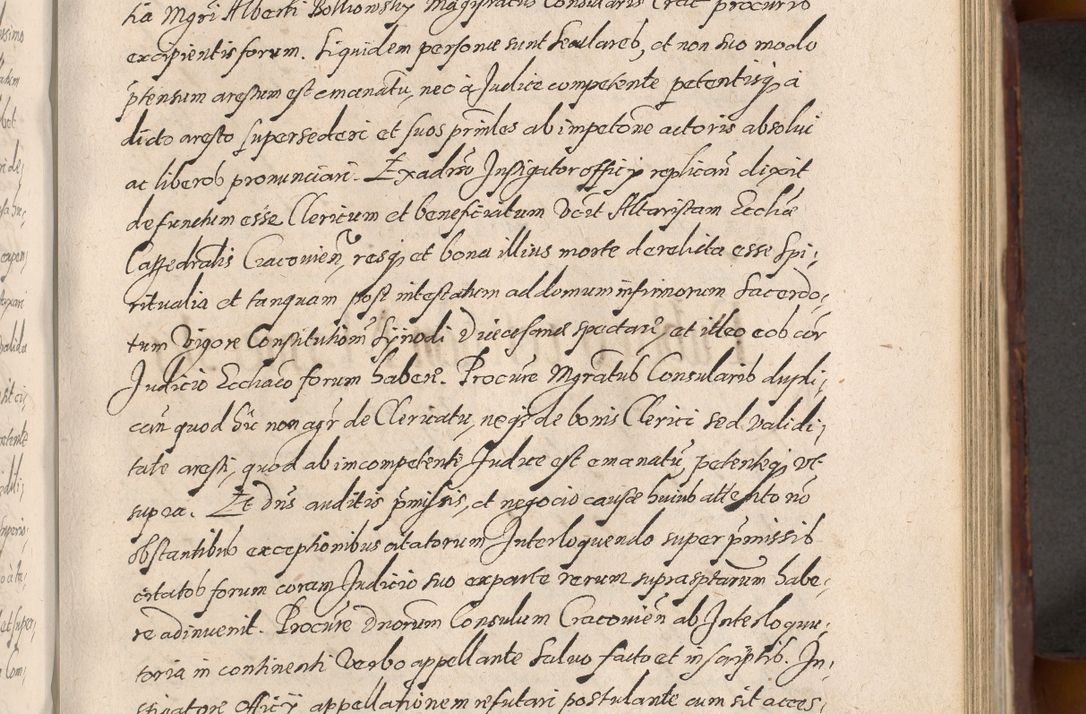 tia Mgri Alberti Bollionsky Magistratus Consularis Crac procurio
excipientis forum. Siquidem personæ sunt seculares, et non suo modo
ptensum arestum est emanatu, nec a Judice competente petentisq̃ a
dicto aresto supersederi et suos prinles ab impetone actoris absolui
ac liberos pronunciari. Ex adũo Instigator officij replicañ dixit
defunctum esse Clericum et beneficiatum Vcit Altaristam Ecchæ
Cathedralis Cracouieñ, resq̃ et bona illius morte derelicta esse Spi,
ritualia et tanquam post intestatum ad domum infirmorum Sacerdo,
tum Vigore Constitutionũ Synodi Diœcesanæ spectare, et ideo eob cor
Judicio Ecchaco forum habere. Procure Mgratus Consularis dupli,
cañ quod hic non agir de Clericatu, neqz de bonis Clerici sed validi,
tate aresti, quod ab imcompetente Judice est emanatũ, petenteq̃ vt
supra. Et Dns auditis pmissis, et negocio causæ huius attento nõ
obstantibus exceptionibus citatorum Interloquendo super pmissis
citatos forum coram Judicio suo ex parte rerum supra sptarum habe,
re adinuenit. Procure Dnorum Consulum Cracouieñ ab Interloquu,
toria in continenti Verbo appellante Saluo facto et in scriptis. In,
stigatore Officij appellationem refutari postulante cum sit acces,